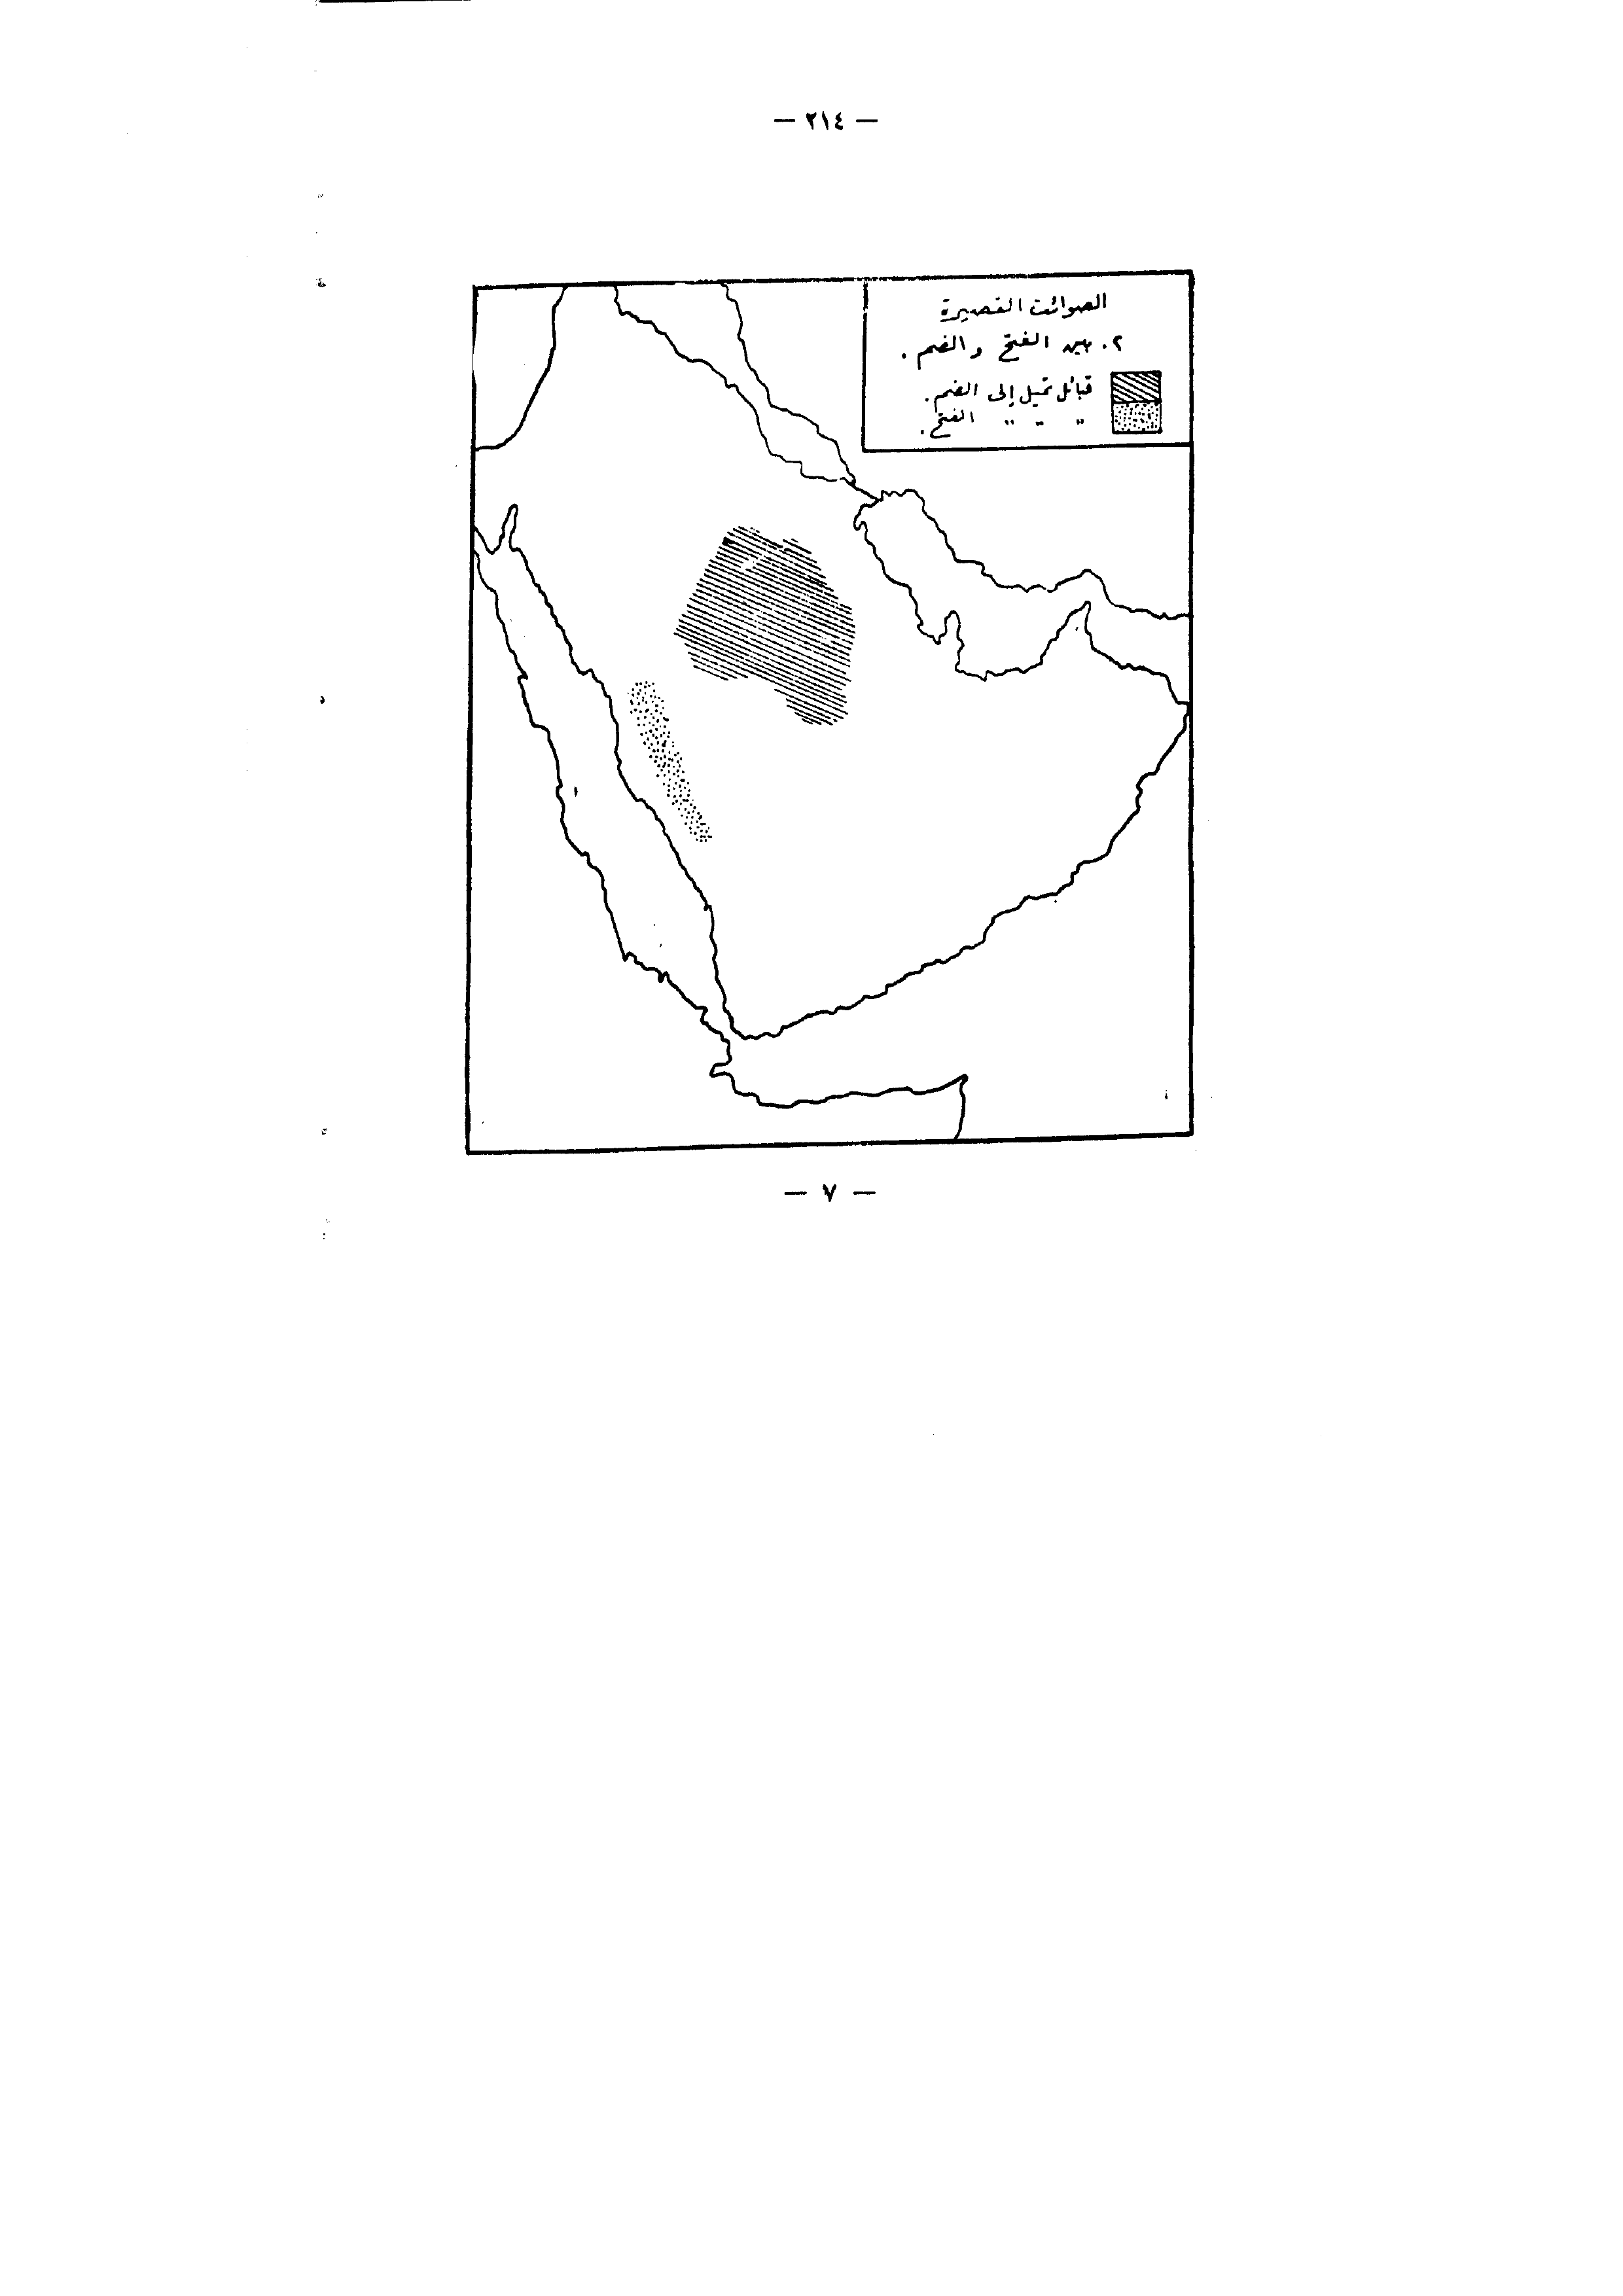 — ٢١٤ —
الصوائت القصيرة
٢. بين الفتح والضم.
قبائل تميل إلى الضم.
" " " الفتح.
— ٧ —